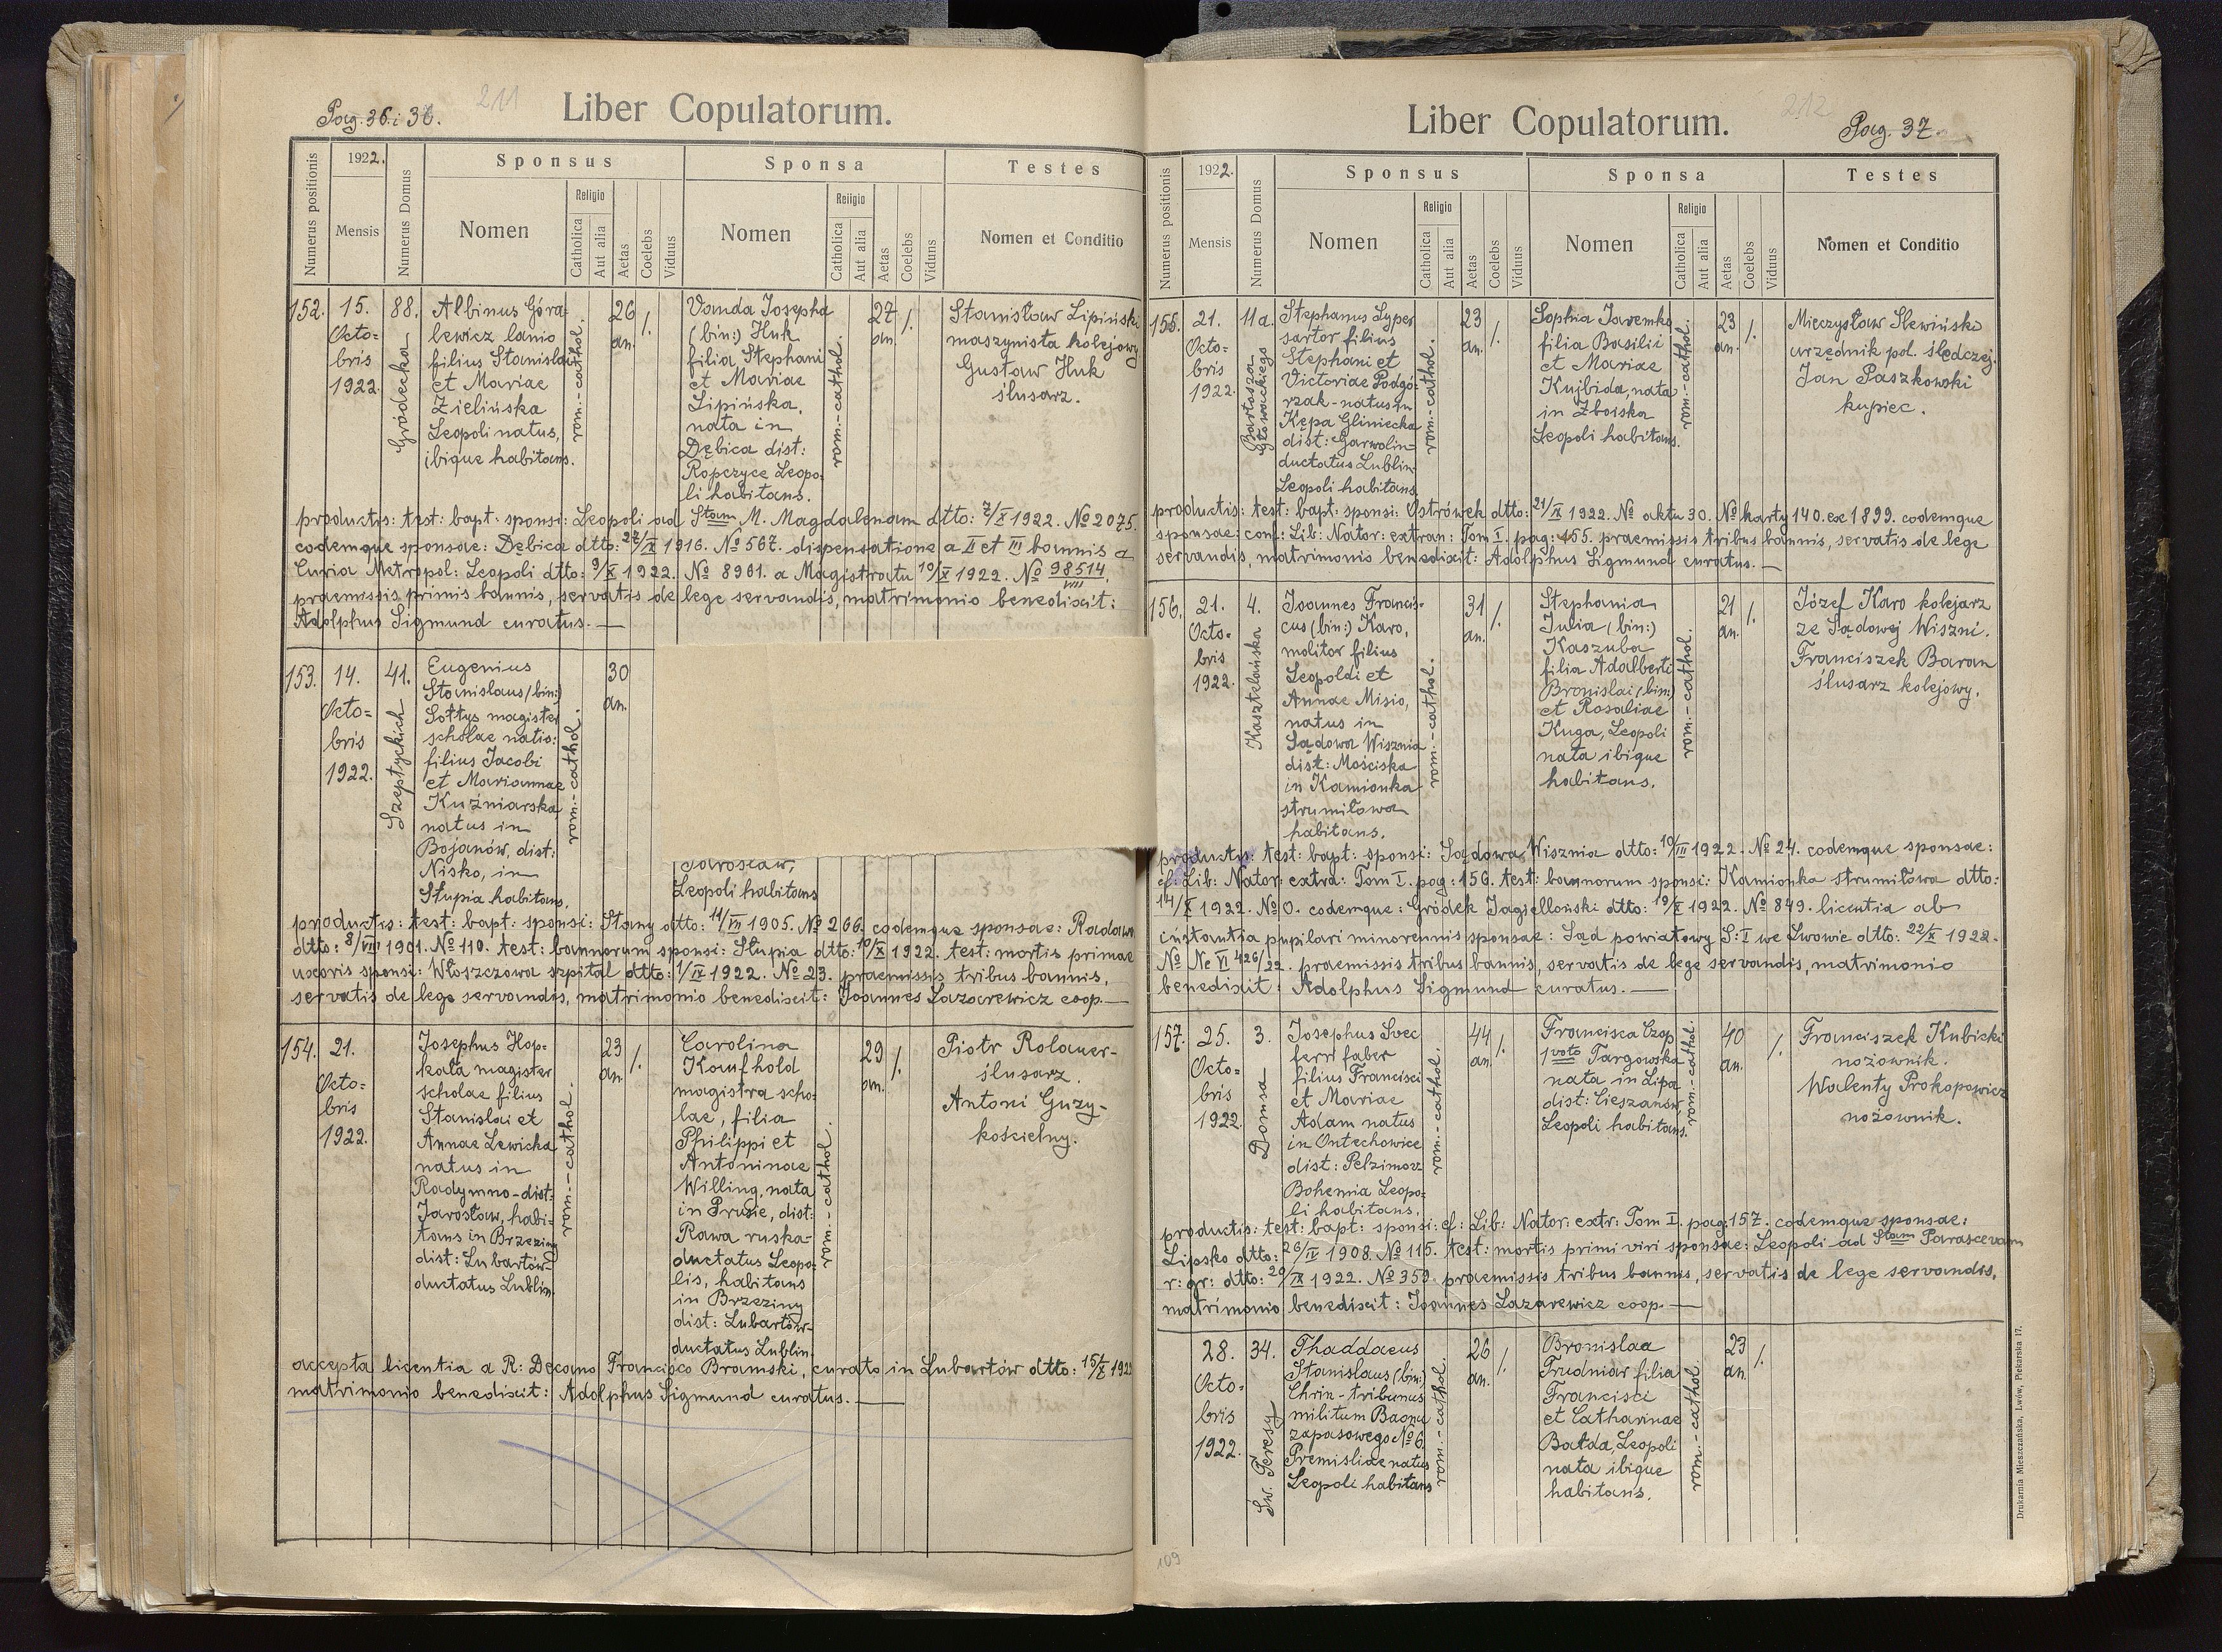 Pag. 36 i 36.
211
Liber Copulatorum.
Numerus positionis
1922.
Mensis
Numerus Domus
Sponsus
Nomen
Religio
Catholica
Aut alia
Aetas
Coelebs
Viduus
Sponsa
Nomen
Religio
Catholica
Aut alia
Aetas
Coelebs
Viduns
Testes
Nomen et Conditio
152.
15.
Octo=
bris
1922.
88.
Gródecka
Albinus Góra-
lewicz lanio
filius Stanislai
et Mariae
Zielińska
Leopoli natus,
ibique habitans.
rom.-cathol.
26
an.
/.
Vanda Josepha
(bin:) Huk
filia Stephani
et Mariae
Lipińska,
nata in
Dębica dist:
Ropczyce Leopo-
li habitans.
rom.-cathol.
27
an.
/.
Stanisław Lipiński
maszynista kolejowy
Gustaw Huk
ślusarz.
productis: test: bapt: sponsi: Leopoli ad Stam M. Magdalenam dtto: 7/X 1922. No 2075.
eodemque sponsae: Dębica dtto: 27/IX 1916. No 567. dispensatione a II et III bannis a
Curia Metropol: Leopoli dtto: 9/X 1922. No 8901. a Magistratu 10/X 1922. No 98514/VIII.
praemissis primis bannis, servatis de lege servandis, matrimonio benedixit:
Adolphus Sigmund curatus.—
153.
14.
Octo=
bris
1922.
41.
Szeptyckich
Eugenius
Stanislaus (bin:)
Sołtys magister
scholae natio:
filius Jacobi
et Mariannae
Kuźniarska
natus in
Bojanów, dist:
Nisko, in
Słupia habitans.
rom.-cathol.
30
an.
Jarosław,
Leopoli habitans
productis: test: bapt: sponsi: Stany dtto: 11/VII 1905. No 266. eodemque sponsae: Radawa
dtto: 8/VIII 1901. No 110. test: bannorum sponsi: Słupia dtto: 10/X 1922. test: mortis primae
uxoris sponsi: Włoszczowa szpital dtto: 1/IX 1922. No 23. praemissis tribus bannis,
servatis de lege servandis, matrimonio benedixit: Joannes Lazarewicz coop.—
154.
21.
Octo=
bris
1922.
Josephus Hop-
kała magister
scholae filius
Stanislai et
Annae Lewicka
natus in
Radymno-dist:
Jarosław, habi-
tans in Brzeziny
dist: Lubartów-
ductatus Lublin.
rom.-cathol.
23
an.
/.
Carolina
Kaufhold
magistra scho-
lae, filia
Philippi et
Antoninae
Willing, nata
in Prusie, dist:
Rawa ruska-
ductatus Leopo-
lis, habitans
in Brzeziny
dist: Lubartów-
ductatus Lublin.
rom.-cathol.
29
an.
/.
Piotr Rolauer-
ślusarz.
Antoni Guzy-
kościelny.
accepta licentia a R: Decano Francisco Bramski, curato in Lubartów dtto: 15/X 1922
matrimonio benedixit: Adolphus Sigmund curatus.—
Liber Copulatorum.
212
Pag. 37.
Numerus positionis
1922.
Mensis
Numerus Domus
Sponsus
Nomen
Religio
Catholica
Aut alia
Aetas
Coelebs
Viduus
Sponsa
Nomen
Religio
Catholica
Aut alia
Aetas
Coelebs
Viduus
Testes
Nomen et Conditio
155.
21.
Octo=
bris
1922.
11a.
Bartosza
Głowackiego
Stephanus Syper
sartor filius
Stephani et
Victoriae Podgó-
rzak-natus in
Kępa Gliniecka
dist: Garwolin-
ductatus Lublin.
Leopoli habitans.
rom.-cathol.
23
an.
/.
Sophia Jaremko
filia Basilii
et Mariae
Kujbida, nata
in Zboiska
Leopoli habitans.
rom.-cathol.
23
an.
/.
Mieczysław Slewiński
urzędnik pol. śledczej.
Jan Paszkowski
kupiec.
productis: test: bapt: sponsi: Ostrówek dtto: 21/IX 1922. No aktu 30. No karty 140. ex 1899. eodemque
sponsae: conf: Lib: Nator: extran: Tom I. pag: 155. praemissis tribus bannis, servatis de lege
servandis, matrimonio benedixit: Adolphus Sigmund curatus.—
156.
21.
Octo-
bris
1922.
4.
Kasztelańska
Joannes Francis-
cus (bin:) Karo,
molitor filius
Leopoldi et
Annae Misio,
natus in
Sądowa Wisznia
dist: Mościska
in Kamionka
strumiłowa
habitans.
rom.-cathol.
31
an.
/.
Stephania
Julia (bin:)
Kaszuba
filia Adalberti
Bronislai (bin:)
et Rosaliae
Kuga, Leopoli
nata ibique
habitans.
rom.-cathol.
21
an.
/.
Józef Karo kolejarz
ze Sądowej Wiszni.
Franciszek Baran
ślusarz kolejowy.
productis: test: bapt: sponsi: Sądowa Wisznia dtto: 19/III 1922. No 24. eodemque sponsae:
cf: Lib: Nator: extra: Tom I. pag: 156. test: bannorum sponsi: Kamionka strumiłowa dtto:
14/X 1922. No 0. eodemque: Gródek Jagielloński dtto: 19/X 1922. No 849. licentia ab
instantia pupilari minorennis sponsae: Sąd powiatowy S: I we Lwowie dtto: 22/X 1922.
No Ne VI 426/22. praemissis tribus bannis, servatis de lege servandis, matrimonio
benedixit: Adolphus Sigmund curatus.—
157.
25.
Octo=
bris
1922.
3.
Domsa
Josephus Svec
ferri faber
filius Francisci
et Mariae
Adam natus
in Ontechowice
dist: Pelzimov
Bohemia Leopo-
li habitans.
rom.-cathol.
44
an.
/.
Francisca Czop
1 voto Targowska
nata in Lipa
dist: Cieszanów,
Leopoli habitans.
rom.-cathol.
40
an.
/.
Franciszek Kubicki
nożownik.
Walenty Prokopowicz
nożownik.
productis: test: bapt: sponsi: cf: Lib: Nator: extr: Tom I. pag: 157. eodemque sponsae:
Lipsko dtto: 26/IV 1908. No 115. test: mortis primi viri sponsae: Leopoli ad Stam Parascevam
r: gr: dtto: 20/IX 1922. No 359. praemissis tribus bannis, servatis de lege servandis,
matrimonio benedixit: Joannes Lazarewicz coop.—
28.
Octo-
bris
1922.
34.
Św. Teresy
Thaddaeus
Stanislaus (bin:)
Chrin-tribunus
militum Baonu
zapasowego No 6.
Premisliae natus
Leopoli habitans
rom.-cathol.
26
an.
/.
Bronislaa
Trudniar filia
Francisci
et Catharinae
Bałda, Leopoli
nata ibique
habitans.
rom.-cathol.
23
an.
/.
Drukarnia Mieszczańska, Lwów, Piekarska 17.
109